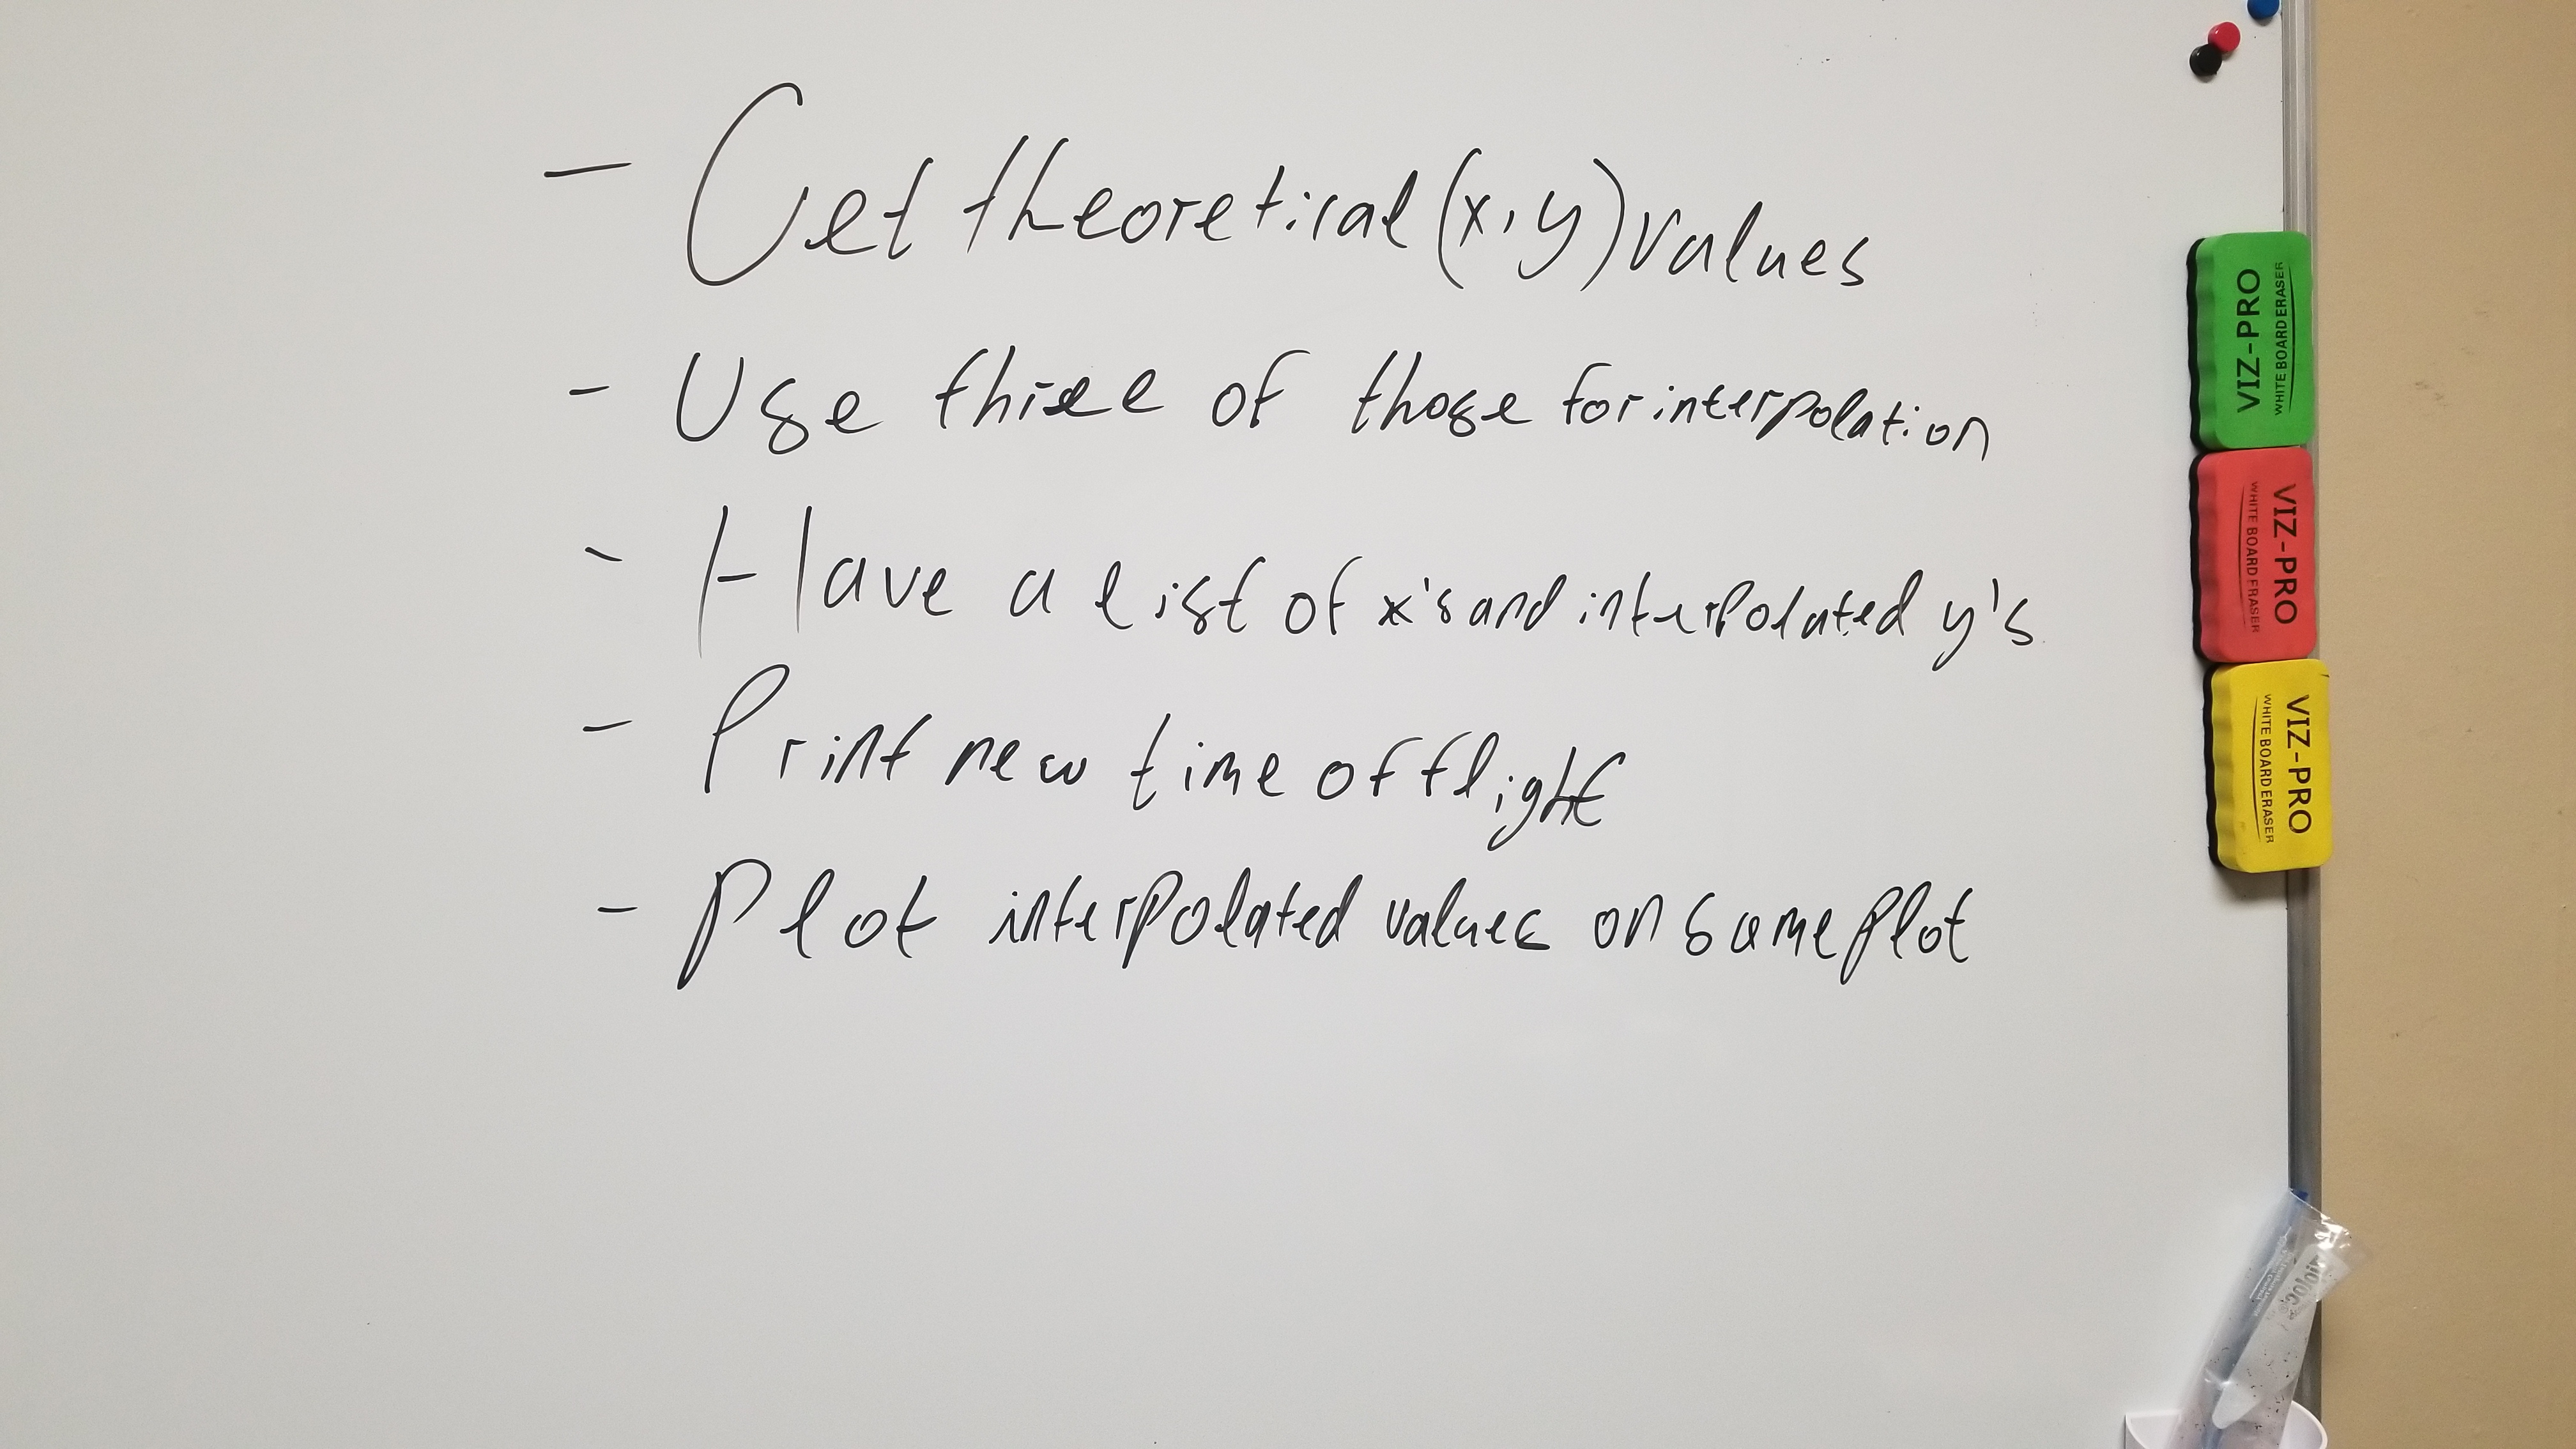 - Get theoretical (x, y) values
- Use three of those for interpolation
- Have a list of x's and interpolated y's
- Print new time of flight
- Plot interpolated values on same plot
VIZ-PRO
WHITE BOARD ERASER
VIZ-PRO
WHITE BOARD ERASER
VIZ-PRO
WHITE BOARD ERASER